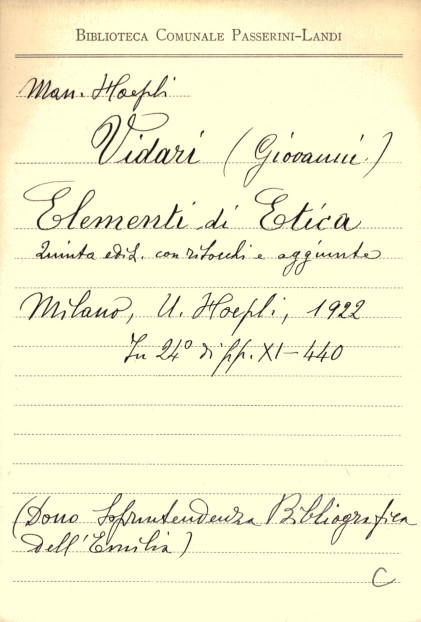 Biblioteca Comunale Passerini-Landi
Man. Hoepli
Vidari (Giovanni.)
Elementi di Etica
Quinta ediz. con ritocchi e aggiunte
Milano, U. Hoepli, 1922
In 24° di pp. XI-440
(Dono Soprintendenza Bibliografica
dell'Emilia)
C